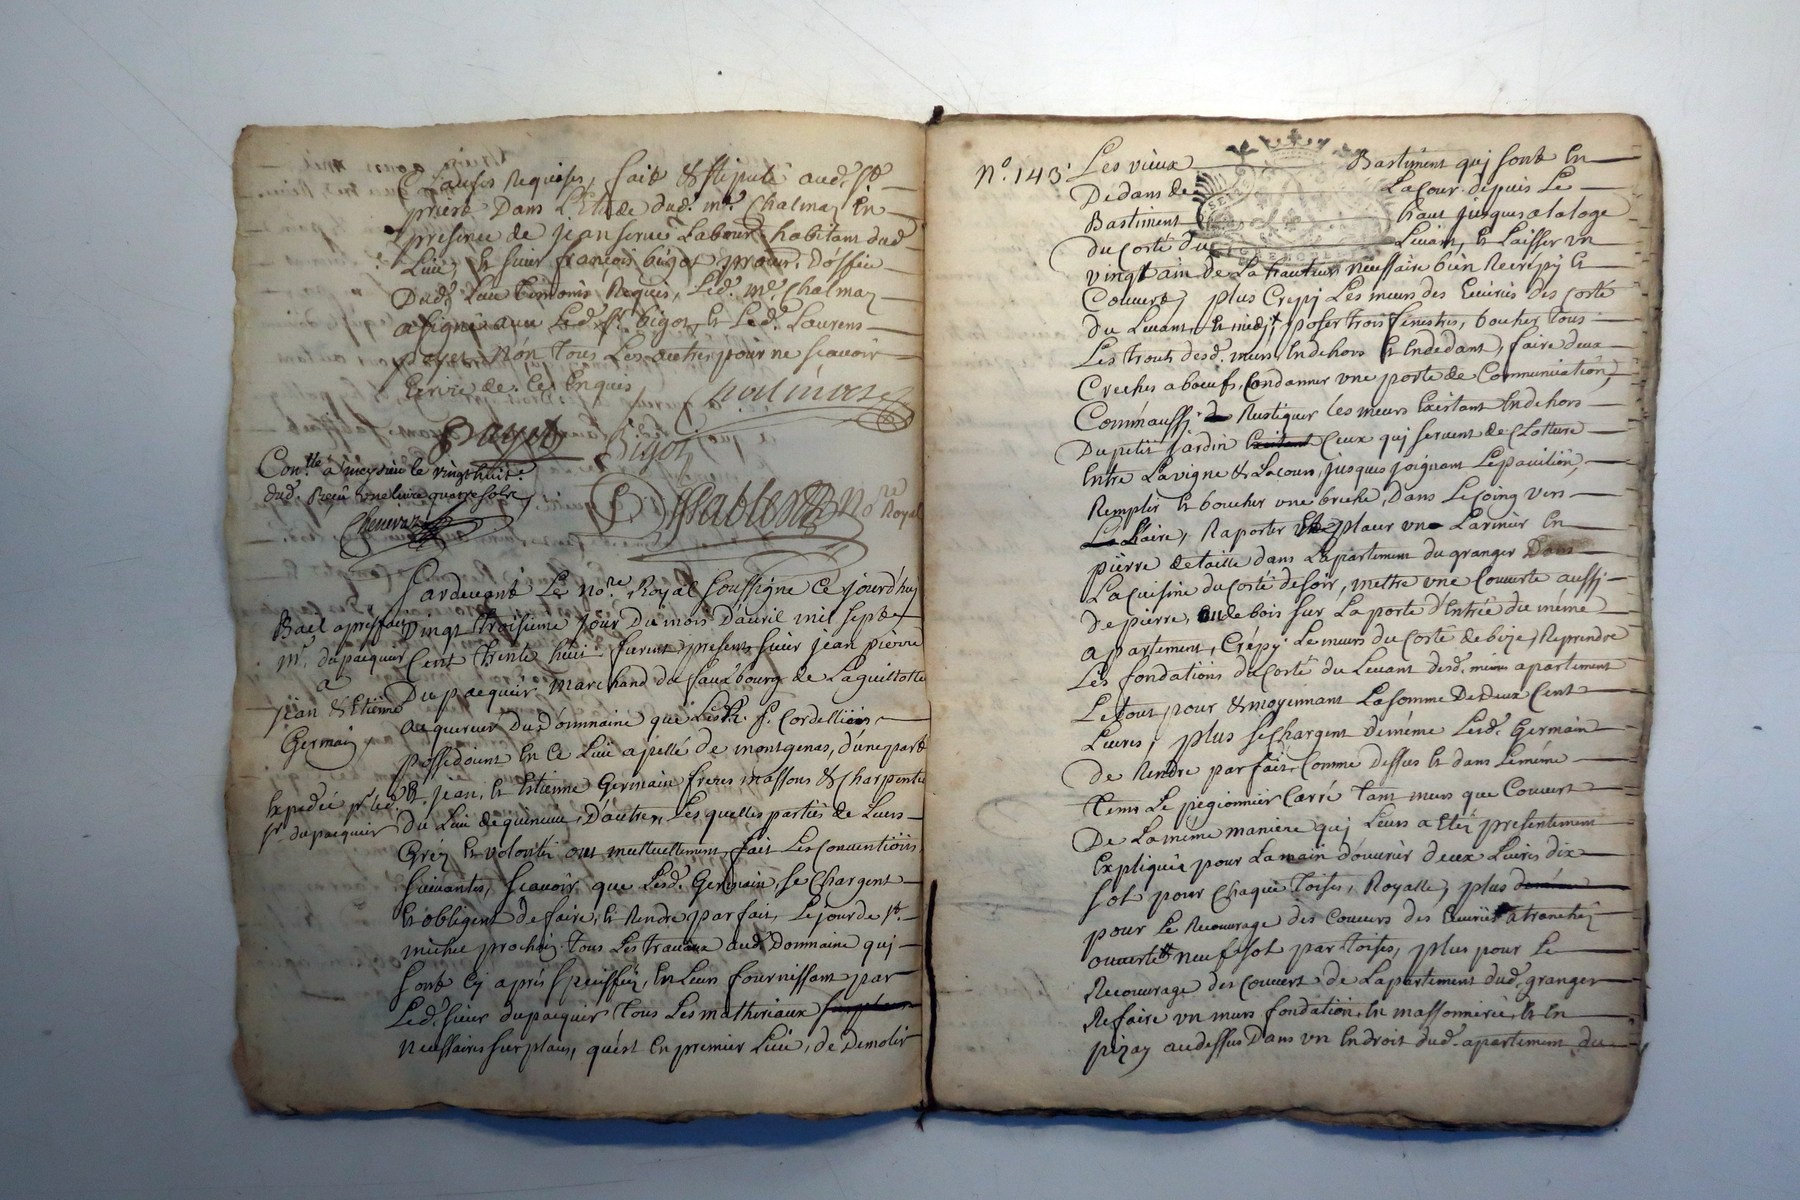 Clauses Requises, fait & stipulé aud. St
priest Dans L'Etude dud. me. Chalmaz En
presence de jean serue Laboureur habitant dud
Lieu, & sieur françois bigot procur. doffice
Dud. Lieu temoins Requis, Led. me. Chalmaz
a signé avec Led. sr. bigot, & Led. Laurens
payet Non Tous Les autres pour ne scavoir
Ecrire de. Ce Enquis
Chalmaz
Payet Bigot
Con.lle à meyzieu le vingt huit
dud. Reçu une livre quatre sols
No.re Royal
Pardevant Le No.re Royal soussigné Ce jourd'huy
vingt troisieme jour Du mois D'auril mil sept
Cent trente huit furent presents sieur jean pierre
Dupacquier marchand du fauxbourg de Laguillotte
acquereur Du Domnaine que Les RR. p. Cordelliers
possedoient En Ce Lieu apellé de montgenas, d'une part
& jean, & Estienne Germain freres massons & Charpentie
du Lieu de D'autre, Les quelles parties de Leurs
Gréz & volontéz ont mutuellement fait Les Conventions
suivantes, scavoir que Lesd. Germain, se Chargent
& obligent de faire, & Rendre parfait, Le jour de st.
michel prochain tous Les travaux aud. Domnaine qui
sont Cy aprés speciffiéz, En Leur fournissant par
Led. sieur dupacquier Tous Les matheriaux
Necessaires sur place, quést En premier Lieu, de Demolir
Bail a prixfait
mr. dupacquier
a
jean & Etienne
Germain
Expedié pr. led.
sr. dupacquier
No. 143
Les vieux Bastiment qui sont En
Dedans de La Cour depuis Le
Bastiment haut jusques a la loge
du Corté du Levant, & Laisser un
vingtain de La hauteur Necessaire bien Recrépy &
Couvert, plus Crepy Les meurs des Ecuries des Corté
du Levant, & midy, poser trois fenestres, boucher tous
Les trouts desd. meurs En dehors & En dedant, faire deux
Creches a boeufs, Condanner une porte de Communication,
Comme aussi Rustiquer les meurs Existant En dehors
Du petit jardin Ceux qui servent de Clotture
Entre La vigne & La cour, jusques joignant Le pavilion,
Remplir & boucher une breche, Dans Le Coing vers
Laire, Raporter & placer un Larmier En
pierre de taille dans L'apartement du granger Dans
La Cuisine du Corté de soir, mettre une Couverte aussi
de pierre, ou de bois sur La porte d'Entrée du même
apartement, Crépy Le meurs du Corté de bize, Reprendre
Les fondations du Corté du Levant desd. même apartement
Le tout pour & moyennant La somme De deux Cent
Livres, plus se Chargent de même Lesd. Germain
de Rendre parfait Comme Dessus & dans Le même
tems Le pigionnier Carré Tant meurs que Couvert
De La même maniere qui Leurs a Eté presentement
Expliquée pour La main d'ouvrier deux Livres dix
sol pour Chaque toises, Royalle, plus
pour Le Recouvrage des Couvers des Ecuries a tranchée
ouverte neuf sol par toises, plus pour Le
Recouvrage des Couvert de L'apartement dud. granger
Refaire un meurs fondation En massonnerie, & En
pizay au dessus Dans un Endroit dud. apartement du